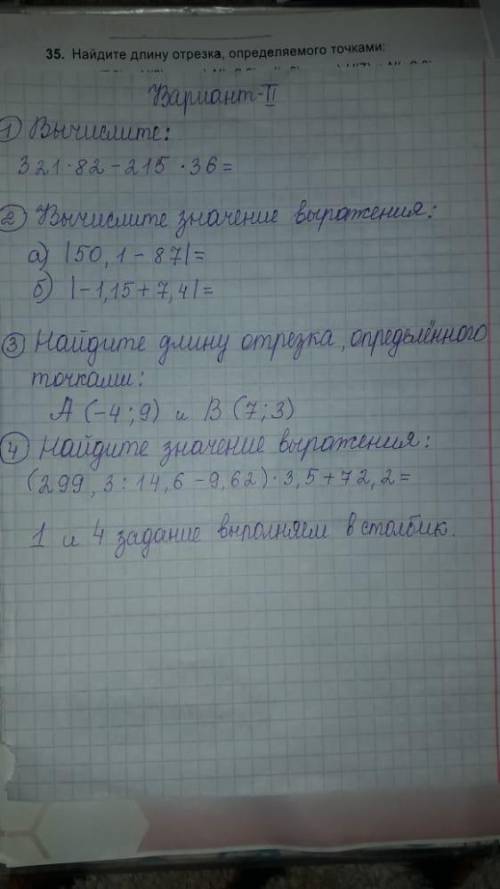 35. Найдите длину отрезка, определяемого точками:
Вариант-II
1 Вычислите:
321·82-215·36=
2 Вычислите значение выражения:
а) |50,1-87|=
б) |-1,15+7,4|=
3 Найдите длину отрезка, определённого
точками:
А (-4;9) и В (7;3)
4 Найдите значение выражения:
(299,3:14,6-9,62)·3,5+72,2=
1 и 4 задание выполняем в столбик.